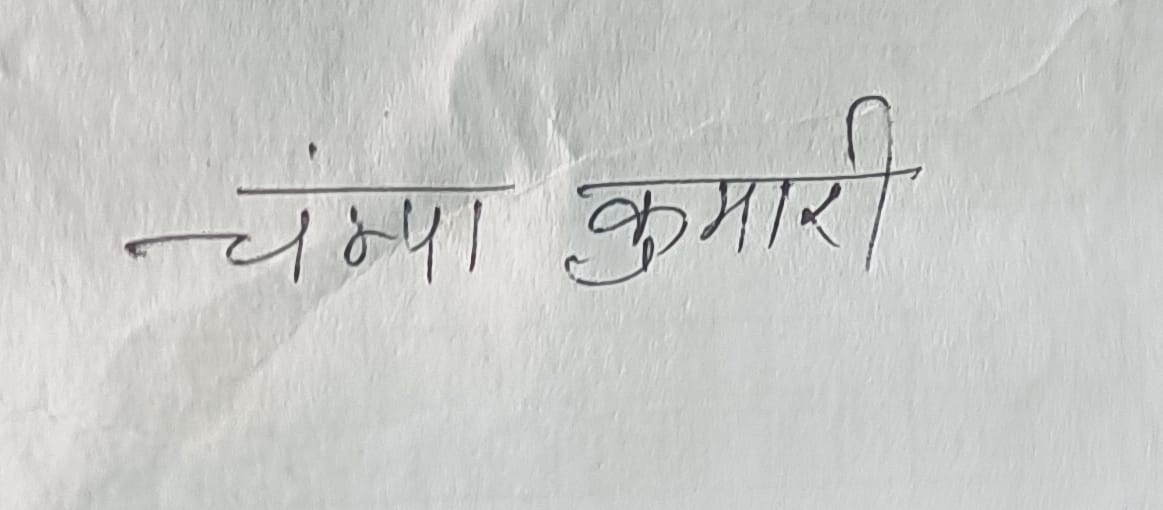 चंम्पा कुमारी